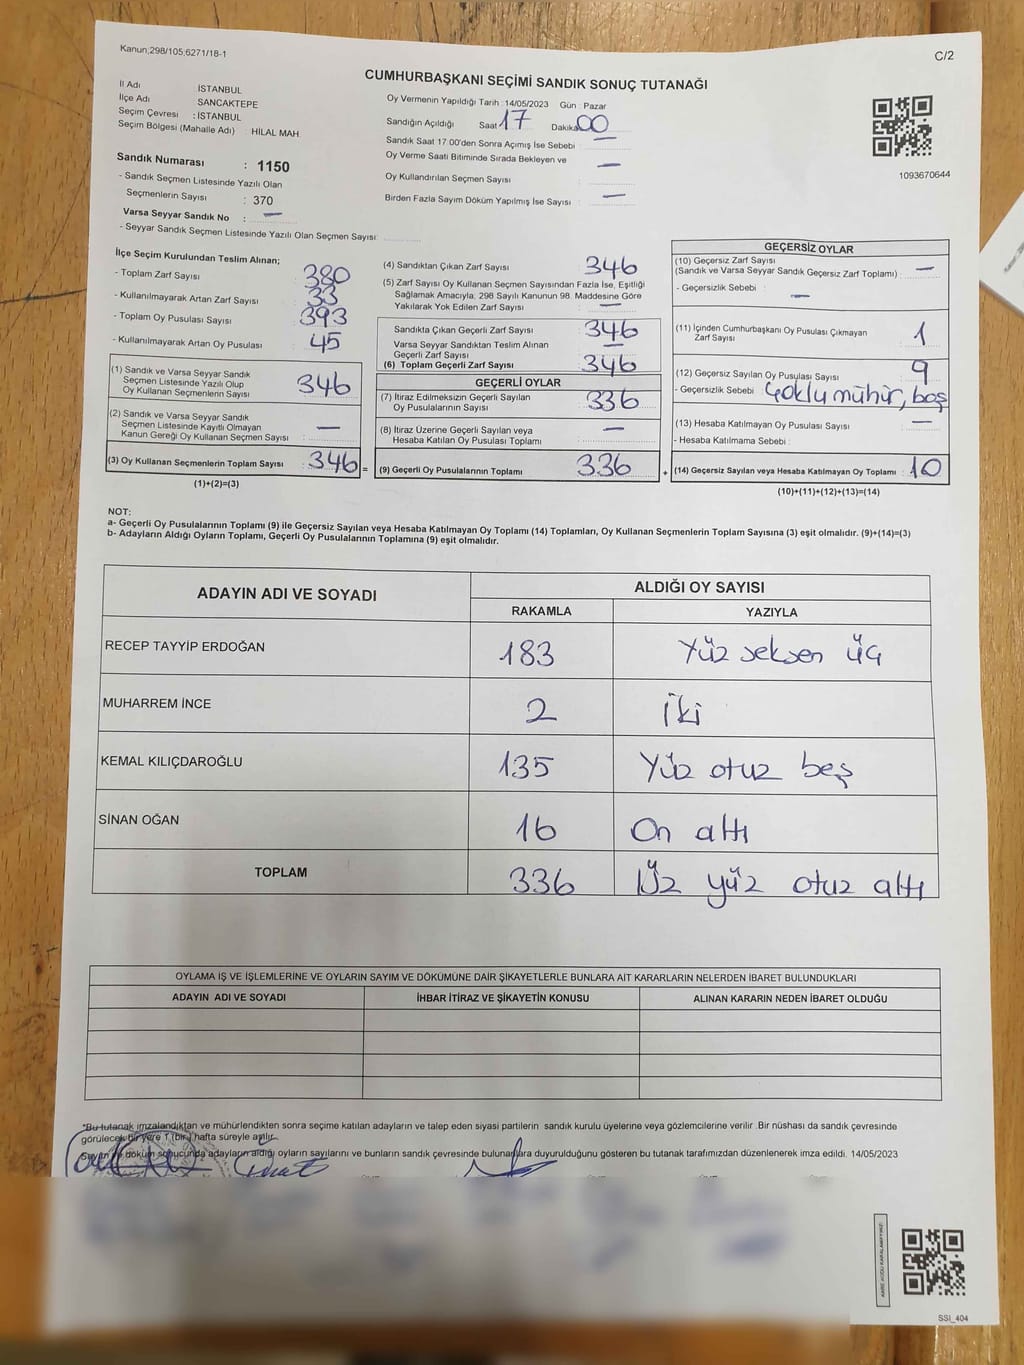 Kanun;298/105;6271/18-1
C/2
CUMHURBAŞKANI SEÇİMİ SANDIK SONUÇ TUTANAĞI
İl Adı İSTANBUL
İlçe Adı SANCAKTEPE
Seçim Çevresi : İSTANBUL
Seçim Bölgesi (Mahalle Adı) : HİLAL MAH.
Sandık Numarası : 1150
- Sandık Seçmen Listesinde Yazılı Olan
Seçmenlerin Sayısı : 370
Varsa Seyyar Sandık No : —
- Seyyar Sandık Seçmen Listesinde Yazılı Olan Seçmen Sayısı:
Oy Vermenin Yapıldığı Tarih : 14/05/2023 Gün : Pazar
Sandığın Açıldığı Saat 17 Dakika 00
Sandık Saat 17.00'den Sonra Açımış İse Sebebi : —
Oy Verme Saati Bitiminde Sırada Bekleyen ve —
Oy Kullandırılan Seçmen Sayısı :
Birden Fazla Sayım Döküm Yapılmış İse Sayısı : —
1093670644
İlçe Seçim Kurulundan Teslim Alınan;
- Toplam Zarf Sayısı : 380
- Kullanılmayarak Artan Zarf Sayısı : 33
- Toplam Oy Pusulası Sayısı : 393
- Kullanılmayarak Artan Oy Pusulası : 45
(1) Sandık ve Varsa Seyyar Sandık
Seçmen Listesinde Yazılı Olup
Oy Kullanan Seçmenlerin Sayısı : 346
(2) Sandık ve Varsa Seyyar Sandık
Seçmen Listesinde Kayıtlı Olmayan
Kanun Gereği Oy Kullanan Seçmen Sayısı : —
(3) Oy Kullanan Seçmenlerin Toplam Sayısı : 346 =
(1)+(2)=(3)
(4) Sandıktan Çıkan Zarf Sayısı : 346
(5) Zarf Sayısı Oy Kullanan Seçmen Sayısından Fazla İse, Eşitliği
Sağlamak Amacıyla; 298 Sayılı Kanunun 98. Maddesine Göre
Yakılarak Yok Edilen Zarf Sayısı : —
Sandıkta Çıkan Geçerli Zarf Sayısı : 346
Varsa Seyyar Sandıktan Teslim Alınan
Geçerli Zarf Sayısı : —
(6) Toplam Geçerli Zarf Sayısı : 346
GEÇERLİ OYLAR
(7) İtiraz Edilmeksizin Geçerli Sayılan
Oy Pusulalarının Sayısı : 336
(8) İtiraz Üzerine Geçerli Sayılan veya
Hesaba Katılan Oy Pusulası Toplamı : —
(9) Geçerli Oy Pusulalarının Toplamı : 336 +
GEÇERSİZ OYLAR
(10) Geçersiz Zarf Sayısı
(Sandık ve Varsa Seyyar Sandık Geçersiz Zarf Toplamı) : —
- Geçersizlik Sebebi : —
(11) İçinden Cumhurbaşkanı Oy Pusulası Çıkmayan
Zarf Sayısı : 1
(12) Geçersiz Sayılan Oy Pusulası Sayısı : 9
- Geçersizlik Sebebi : Çoklu mühür, boş
(13) Hesaba Katılmayan Oy Pusulası Sayısı : —
- Hesaba Katılmama Sebebi :
(14) Geçersiz Sayılan veya Hesaba Katılmayan Oy Toplamı : 10
(10)+(11)+(12)+(13)=(14)
NOT:
a- Geçerli Oy Pusulalarının Toplamı (9) ile Geçersiz Sayılan veya Hesaba Katılmayan Oy Toplamı (14) Toplamları, Oy Kullanan Seçmenlerin Toplam Sayısına (3) eşit olmalıdır. (9)+(14)=(3)
b- Adayların Aldığı Oyların Toplamı, Geçerli Oy Pusulalarının Toplamına (9) eşit olmalıdır.
ADAYIN ADI VE SOYADI ALDIĞI OY SAYISI
RAKAMLA YAZIYLA
RECEP TAYYİP ERDOĞAN 183 Yüz seksen üç
MUHARREM İNCE 2 İki
KEMAL KILIÇDAROĞLU 135 Yüz otuz beş
SİNAN OĞAN 16 On altı
TOPLAM 336 Üz yüz otuz altı
OYLAMA İŞ VE İŞLEMLERİNE VE OYLARIN SAYIM VE DÖKÜMÜNE DAİR ŞİKAYETLERLE BUNLARA AİT KARARLARIN NELERDEN İBARET BULUNDUKLARI
ADAYIN ADI VE SOYADI İHBAR İTİRAZ VE ŞİKAYETİN KONUSU ALINAN KARARIN NEDEN İBARET OLDUĞU
*Bu tutanak imzalandıktan ve mühürlendikten sonra seçime katılan adayların ve talep eden siyasi partilerin sandık kurulu üyelerine veya gözlemcilerine verilir .Bir nüshası da sandık çevresinde
görülecek bir yere 1 (bir) hafta süreyle asılır.
Sayım ve döküm sonucunda adayların aldığı oyların sayılarını ve bunların sandık çevresinde bulunanlara duyurulduğunu gösteren bu tutanak tarafımızdan düzenlenerek imza edildi. 14/05/2023
SSI_404